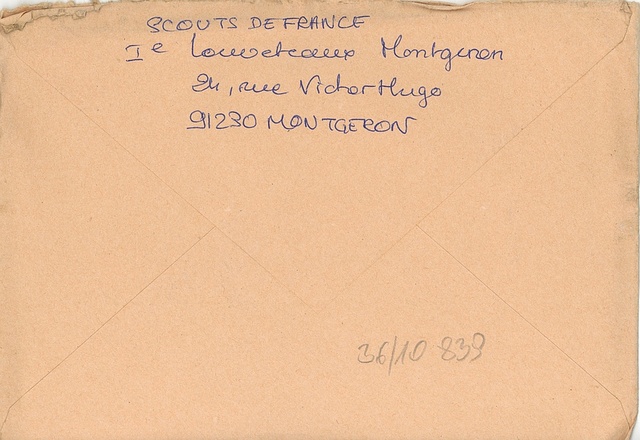 SCOUTS DE FRANCE
Ie Louveteaux Montgeron
24, rue Victor Hugo
91230 MONTGERON
36/10 839